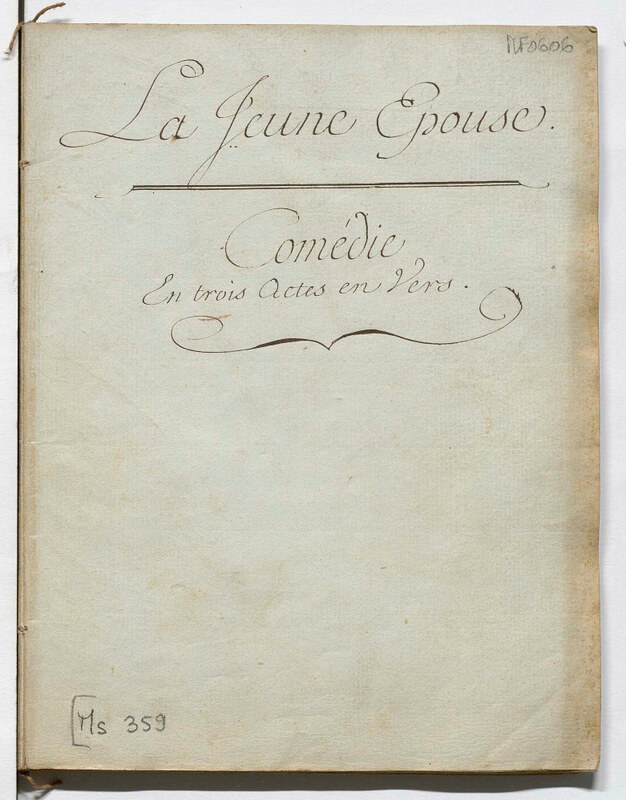 MF0606
La Jeune Epouse.
Comédie
En trois Actes en Vers.
[Ms 359